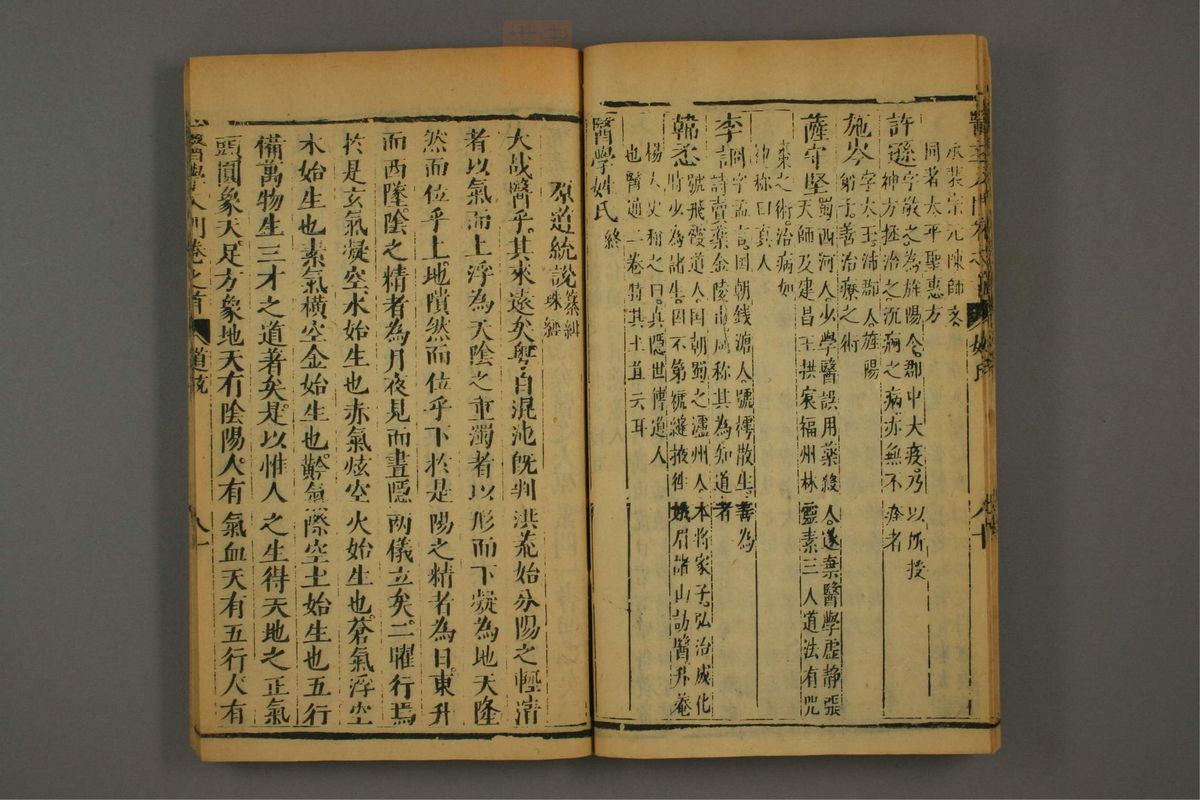 承裴宗元陳師文
同著太平聖惠方
許遜字敬之為旌陽令郡中大疫乃以所授
神方拯治之沉痾之病亦無不痊者
施岑字太玉沛郡人旌陽
弟子善治療之術
薩守堅蜀西河人少學醫誤用藥殺人遂棄醫學虛靜張
天師及建昌王拱宸福州林靈素三人道法有咒
棗之術治病如
神稱曰真人
李言詩賣藥金陵市咸稱其為知道者
同字孟言國朝錢塘人號樗散生善為
韓𢘅號飛霞道人國朝蜀之瀘州人本將家子弘治成化
時少為諸生因不第褫縫掖徃峨眉諸山訪醫升菴
楊太史稱之曰真隱世傳道人
也醫通二卷特其土苴云耳
醫學姓氏終
原道統說
大哉醫乎其來遠矣粵自混沌既判洪荒始分陽之輕清
者以氣而上浮為天陰之重濁者以形而下凝為地天隆
然而位乎上地隤然而位乎下於是陽之精者為日東升
而西墜陰之精者為月夜見而晝隱兩儀立矣二曜行焉
於是玄氣凝空水始生也赤氣炫空火始生也蒼氣浮空
木始生也素氣橫空金始生也黅氣際空土始生也五行
備萬物生三才之道著矣是以惟人之生得天地之正氣
頭圓象天足方象地天有陰陽人有氣血天有五行人有
醫學入門卷之首
道統
八十一